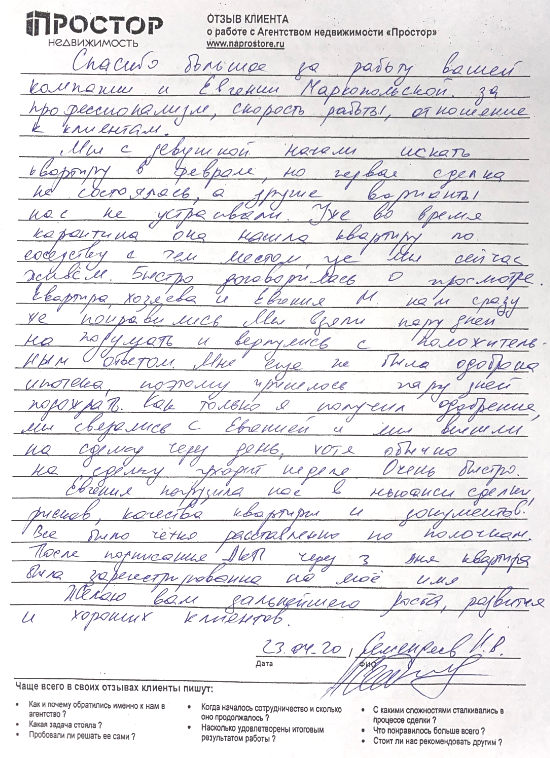 ПРОСТОР
НЕДВИЖИМОСТЬ
ОТЗЫВ КЛИЕНТА
о работе с Агентством недвижимости «Простор»
www.naprostore.ru
Спасибо большое за работу вашей
компании и Евгении Маркопольской. за
профессионализм, скорость работы, отношение
к клиентам.
Мы с девушкой начали искать
квартиру в феврале, но первая сделка
не состоялась, а другие варианты
нас не устраивали. Уже во время
карантина она нашла квартиру по
соседству с тем местом, где мы сейчас
живём. Быстро договорилась о просмотре.
Квартира, хозяева и Евгения М. нам сразу
же понравились. Мы взяли пару дней
на подумать и вернулись с положитель-
ным ответом. Мне ещё не была одобрена
ипотека, поэтому пришлось пару дней
подождать. Как только я получил одобрение,
мы связались с Евгенией и мы вышли
на сделку через день, хотя обычно
на сделку уходит неделя. Очень быстро.
Евгения погрузила нас в ньюансы сделки,
рисков, качества квартиры и документов.
Все было чётко расставленно по полочкам.
После подписание ДКП через 3 дня квартира
была зарегистрированна на моё имя
Желаю вам дальнейшего роста, развития
и хороших клиентов.
23.04.20 /
Дата
ФИО
Чаще всего в своих отзывах клиенты пишут:
• Как и почему обратились именно к нам в
агентство ?
• Какая задача стояла ?
• Пробовали ли решать ее сами ?
• Когда началось сотрудничество и сколько
оно продолжалось ?
• Насколько удовлетворены итоговым
результатом работы ?
• С какими сложностями сталкивались в
процессе сделки ?
• Что понравилось больше всего ?
• Стоит ли нас рекомендовать другим ?